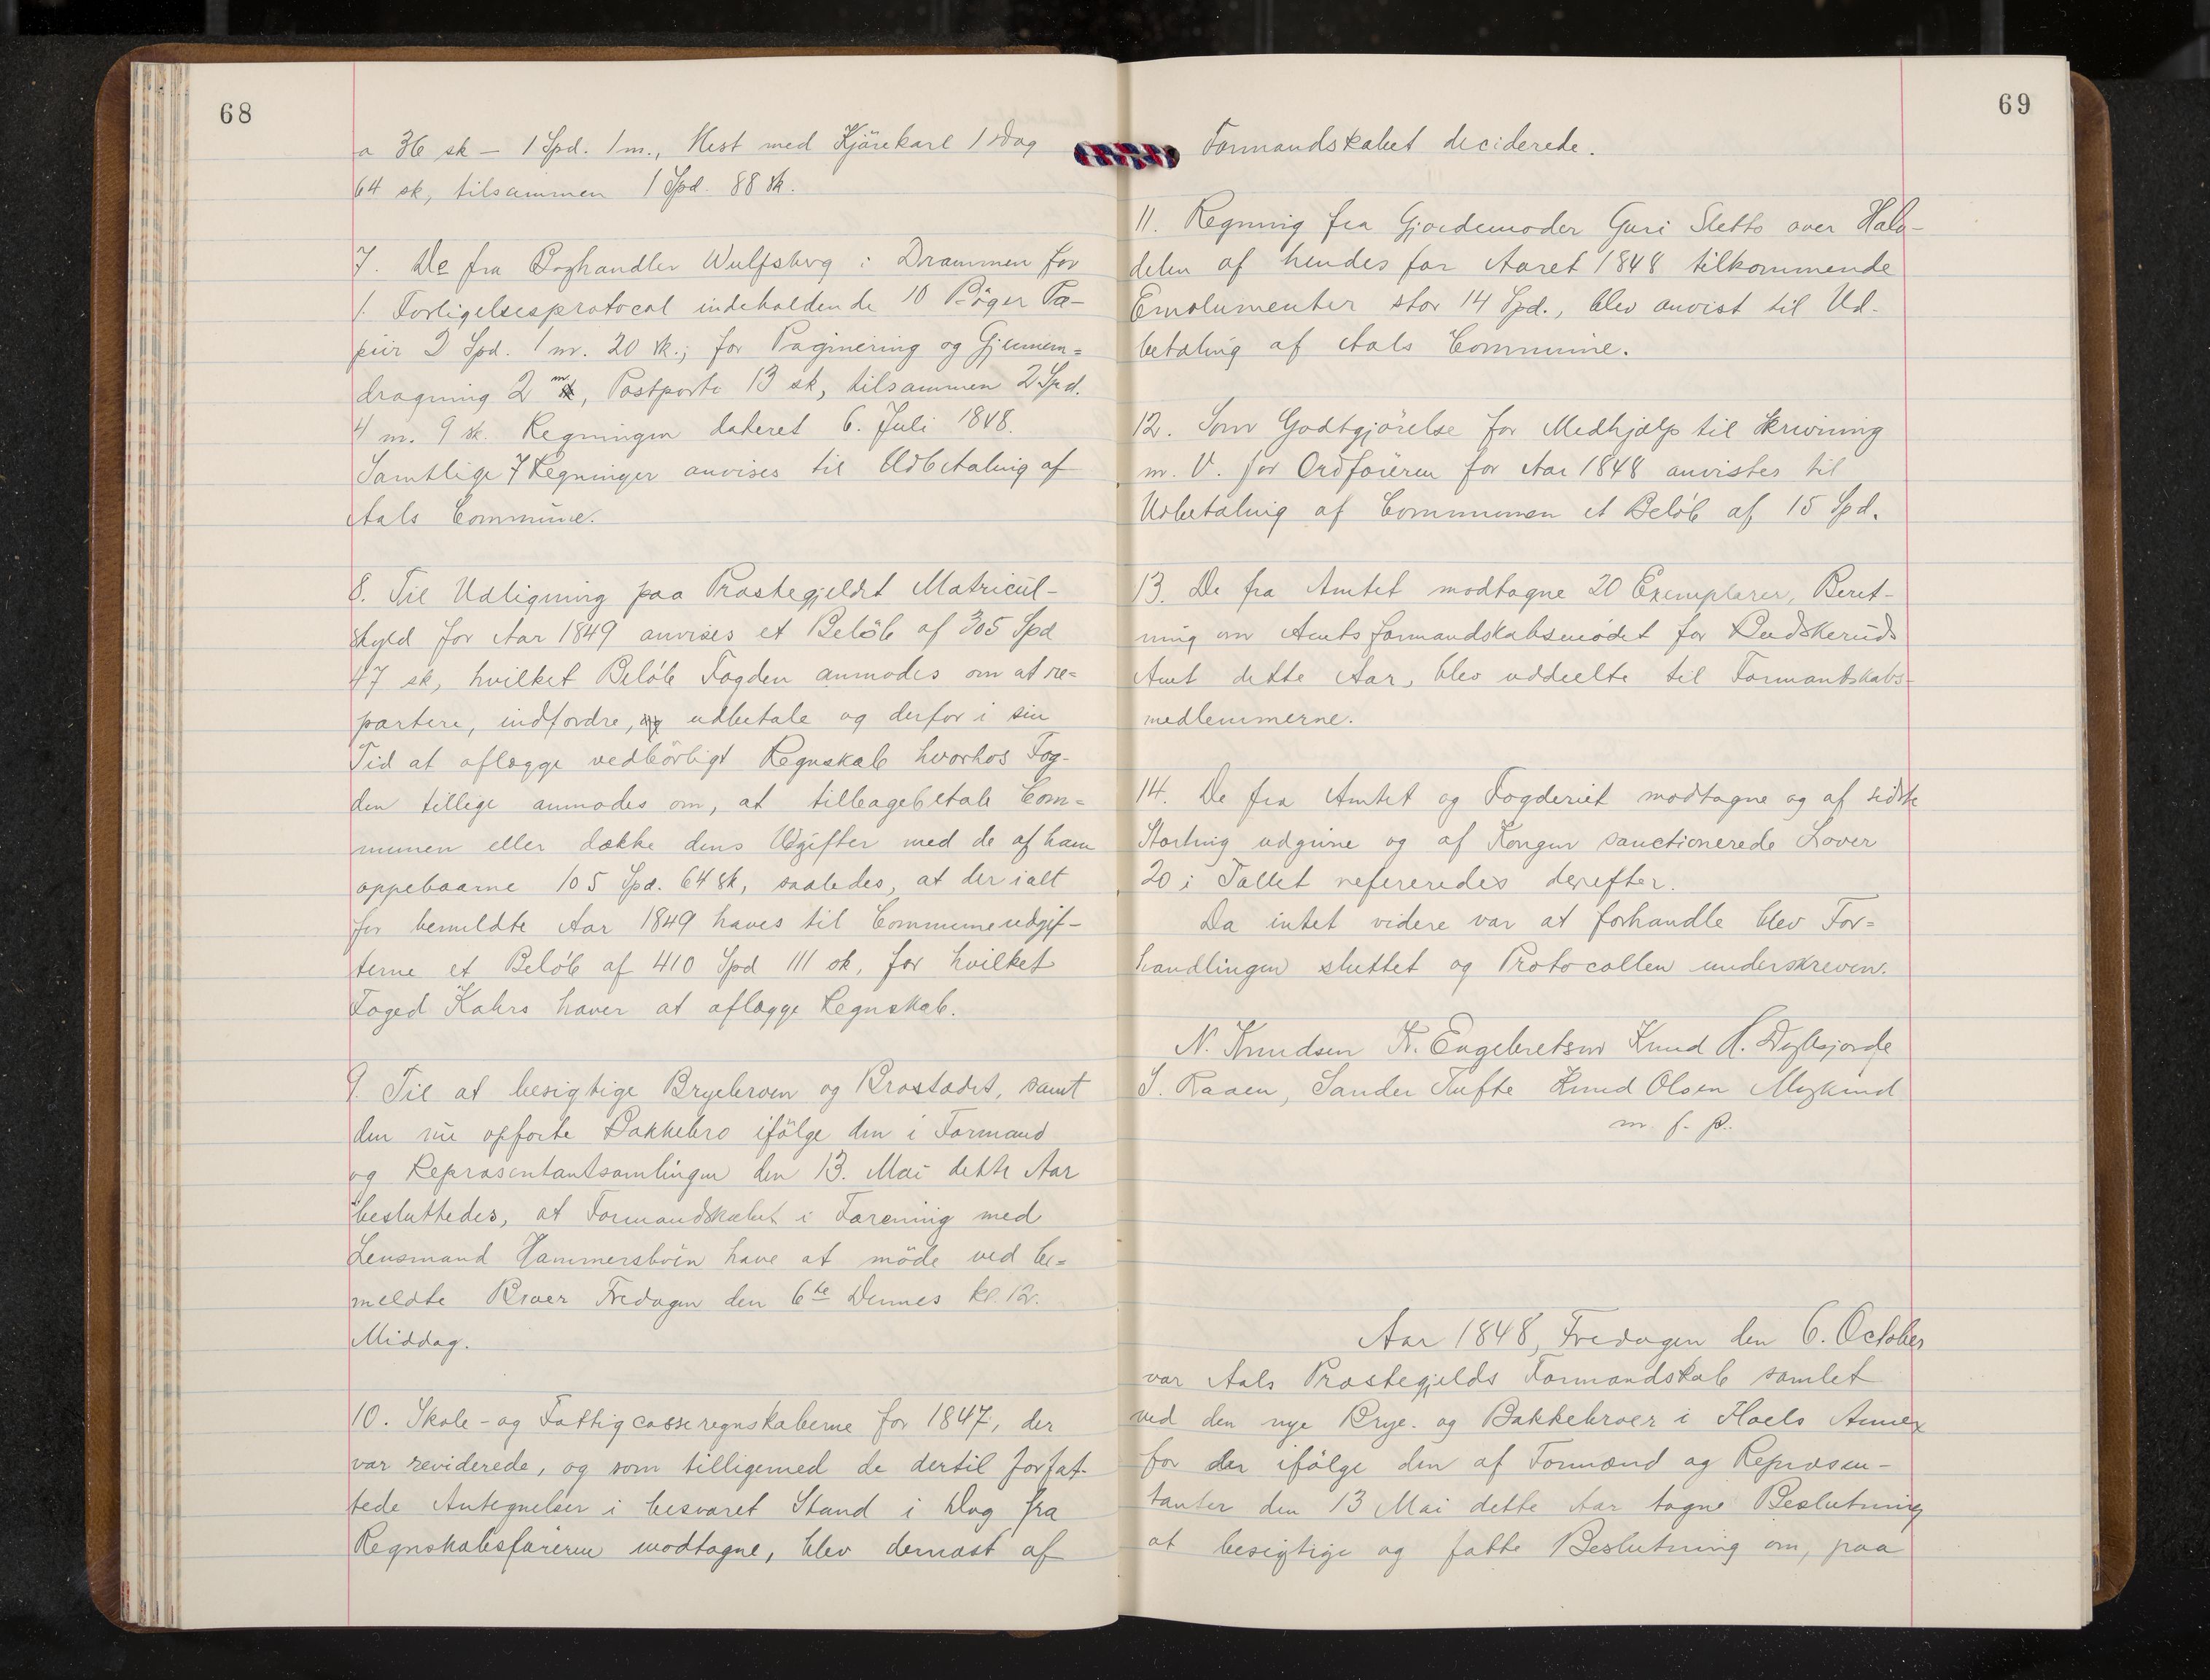 68
a 36 sk - 1 Spd. 1 m., Hest med Kjörekarl 1 Dag
64 sk, tilsammen 1 Spd. 88 sk.
7. De fra Boghandler Wulfsberg i Drammen for
1. Forligelsesprotocol indeholdende 10 Böger Pa-
piir 2 Spd. 1 m. 20 sk.; for Paginering og Gjennem=
dragning 2 m, Postporto 13 sk, tilsammen 2 Spd.
4 m. 9 sk. Regningen dateret 6. Juli 1848.
Samtlige 7 Regninger anvises til Udbetaling af
Aals Commune.
8. Til Udligning paa Præstegjeldet Matricul-
skyld for Aar 1849 anvises et Belöb af 305 Spd
47 sk, hvilket Belöb Fogden anmodes om at re=
partere, indfordre, og udbetale og derfor i sin
Tid at aflægge vedbörligt Regnskab hvorhos Fog-
den tillige anmodes om, at tilbagebetale Com=
munen eller dække dens Udgifter med de af ham
oppebaarne 105 Spd. 64 sk, saaledes, at der ialt
for bemeldte Aar 1849 haves til Communeudgif-
terne et Belöb af 410 Spd 111 sk, for hvilket
Foged Kahrs haver at aflægge Regnskab.
9. Til at besigtige Bryebroen og Brostædet, samt
den nu opförte Bakkebro ifölge den i Formand
og Repræsentantsamlingen den 13. Mai dette Aar
besluttedes, at Formandskabet i Forening med
Lensmand Hammersböen have at möde ved be=
meldte Broer Fredagen den 6te Dennes kl. 12.
Middag.
10. Skole- og Fattigcasseregnskaberne for 1847, der
var reviderede, og som tilligemed de dertil forfat-
tede Antegnelser i besvaret Stand i Dag fra
Regnskabsföreren modtagne, blev dernæst af
69
Formandskabet deciderede.
11. Regning fra Gjordemoder Guri Sletto over Halv-
delen af hendes for Aaret 1848 tilkommende
Emolumenter stor 14 Spd., blev anvist til Ud-
betaling af Aals Commune.
12. Som Godtgjörelse for Medhjælp til Skrivning
m. V. for Ordföreren for Aar 1848 anvistes til
Udbetaling af Communen et Belöb af 15 Spd.
13. De fra Amtet modtagne 20 Exemplarer, Beret-
ning om Amtsformandskabsmödet for Budskeruds
Amt dette Aar, blev uddeelte til Formantskabs-
medlemmerne.
14. De fra Amtet og Fogderiet modtagne og af sidste
Storting udgivne og af Kongen sanctionerede Lover
20 i Tallet refereredes derefter.
Da intet videre var at forhandle blev For=
handlingen sluttet og Protocollen underskreven.
N. Knudsen K. Engebretsen Knud H.
S. Raaen, Sander Tufte Knud Olsen Myking
m. f. P.
Aar 1848, Fredagen den 6. October
var Aals Præstegjelds Formandskab samlet
ved den nye Brye- og Bakkebroer i Hoels Annex
for der ifölge den af Formænd og Repræsen-
tanter den 13 Mai dette Aar tagne Beslutning
at besigtige og fatte Beslutning om, paa